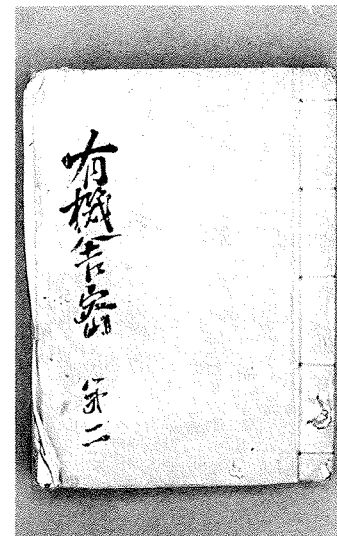 有機舎密
第二